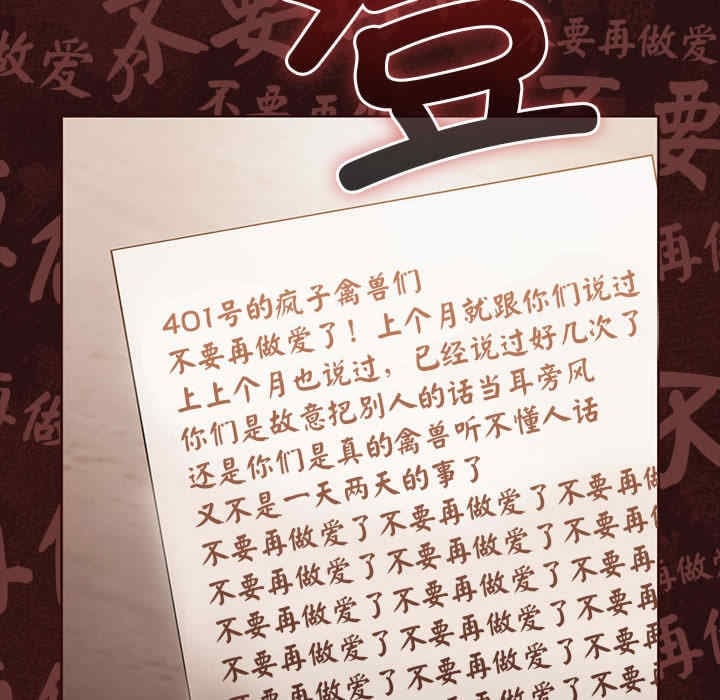 登
不要
不要再做爱
做爱了
不要再做
401号的疯子禽兽们
不要再做爱了！上个月就跟你们说过
上上个月也说过，已经说过好几次了
你们是故意把别人的话当耳旁风
还是你们是真的禽兽听不懂人话
又不是一天两天的事了
不要再做爱了不要再做爱了不要再做
不要再做爱了不要再做爱了不要再
不要再做爱了不要再做爱了不要再
不要再做爱了不要再做爱了不要再
不要再做爱了不要再做爱了不要再